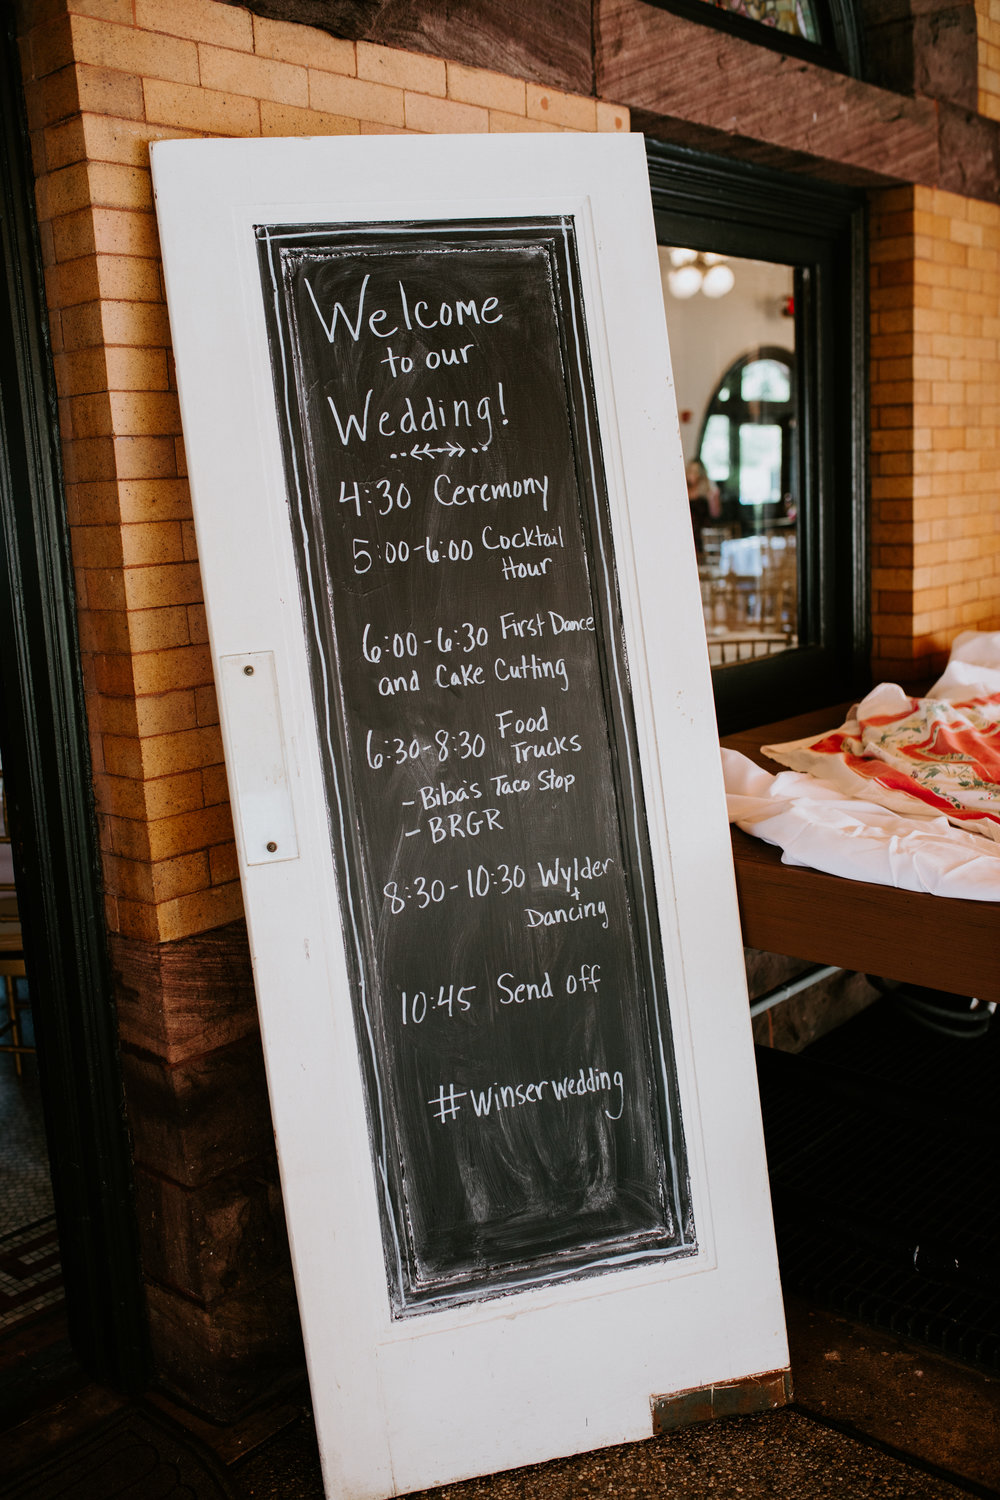 Welcome
to our
Wedding!
4:30 Ceremony
5:00-6:00 Cocktail
Hour
6:00-6:30 First Dance
and Cake Cutting
6:30-8:30 Food
Trucks
- Biba's Taco Stop
- BRGR
8:30-10:30 Wylder
+
Dancing
10:45 Send off
#winserwedding